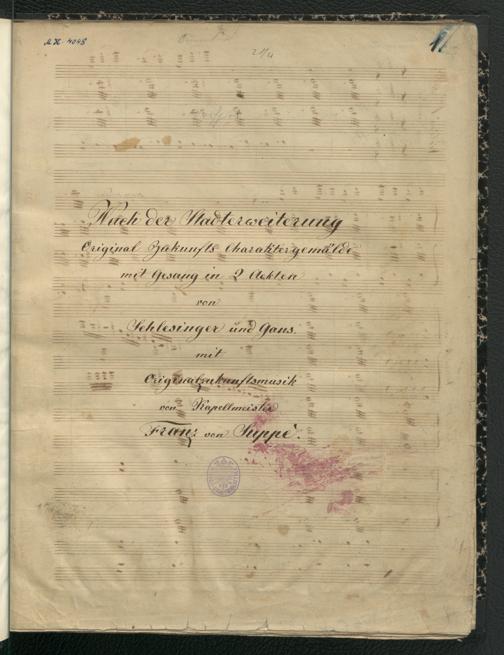 M.H. 4048
1.
Nach der Stadterweiterung
Original Zukunfts Charaktergemälde
mit Gesang in 2 Ackten
von
Schlesinger und Gans.
mit
Originalzukunftsmusik
von Kapellmeister
Franz von Suppè.